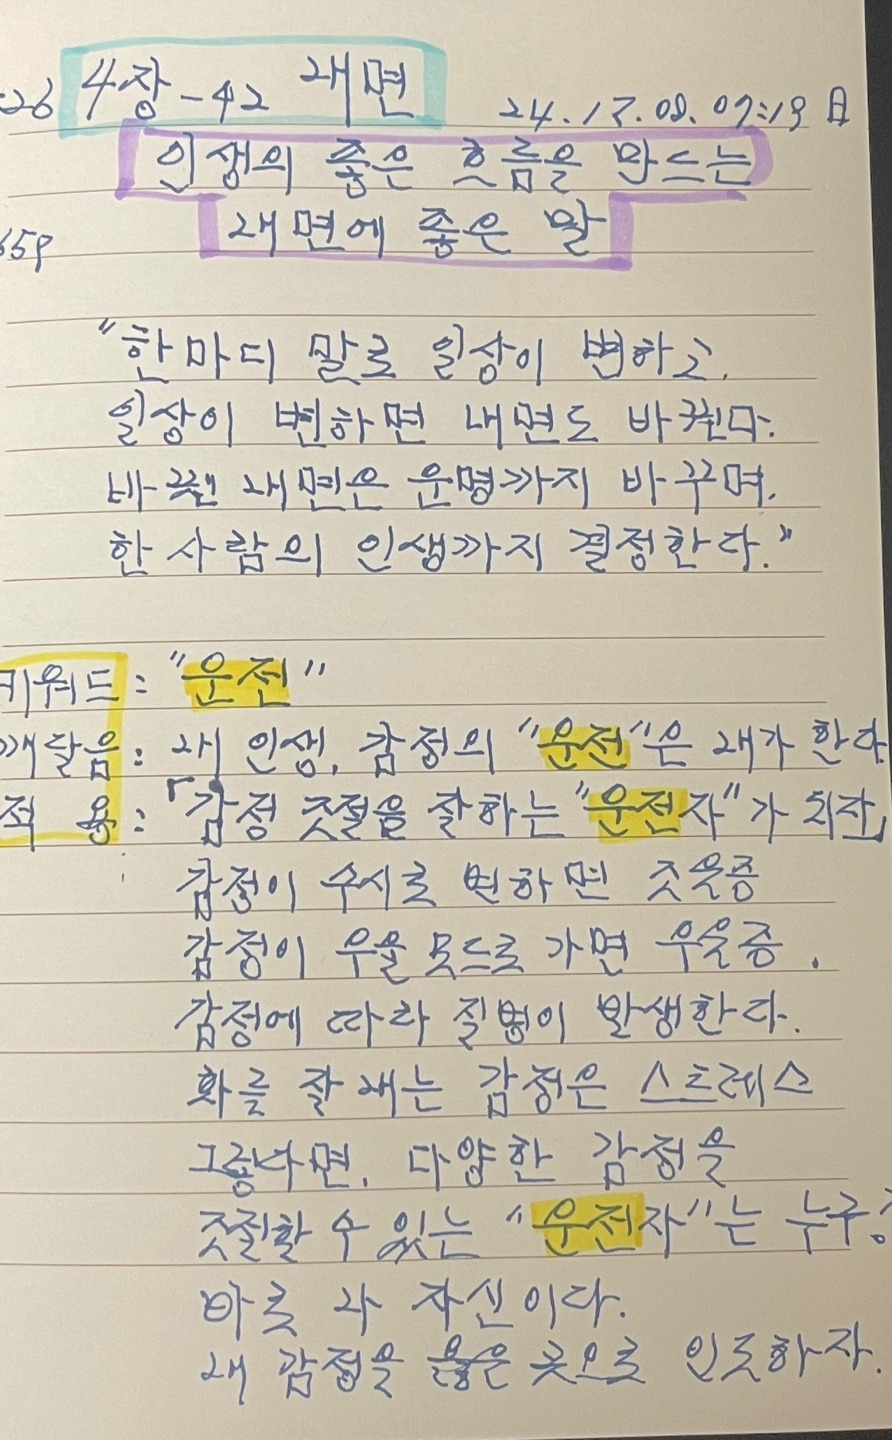 26 4장-42 내면 24.12.08. 07:19 日
인생의 좋은 흐름을 만드는
내면에 좋은 말
65p
"한마디 말로 일상이 변하고,
일상이 변하면 내면도 바뀐다.
바뀐 내면은 운명까지 바꾸며,
한 사람의 인생까지 결정한다."
키워드 : "운전"
깨달음 : 내 인생, 감정의 "운전"은 내가 한다
적 용 : 「감정 조절을 잘하는 "운전자"가 되자」
감정이 수시로 변하면 조울증
감정이 우울 모드로 가면 우울증.
감정에 따라 질병이 발생한다.
화를 잘 내는 감정은 스트레스
그렇다면, 다양한 감정을
조절할 수 있는 "운전자"는 누구?
바로 나 자신이다.
내 감정을 옳은 곳으로 인도하자.